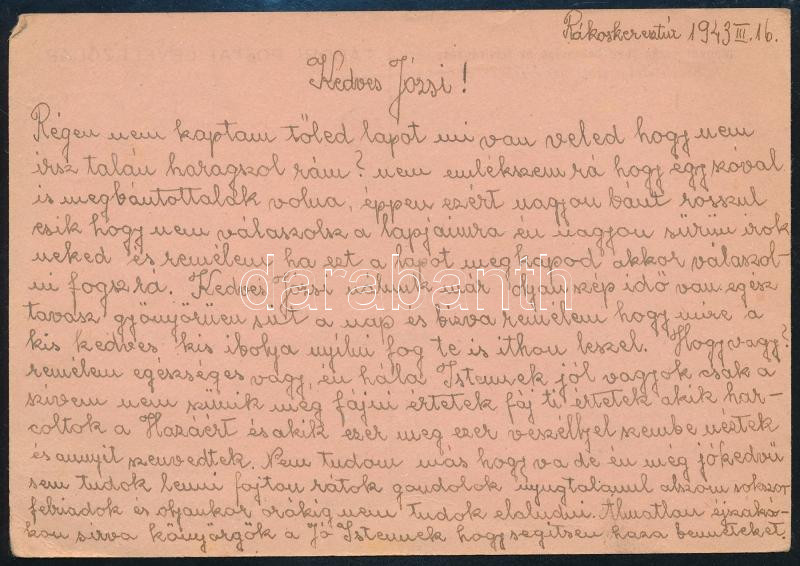 Rákoskeresztúr 1943 III. 16.
Kedves Józsi!
Régen nem kaptam tőled lapot mi van veled hogy nem
irsz talán haragszol rám? nem emlékszem rá hogy egy szóval
is megbántottalak volna, éppen ezért nagyon bánt rosszul
esik hogy nem válaszolsz a lapjaimra én nagyon sürün irok
neked és remélem ha ezt a lapot megkapod akkor válaszol-
ni fogsz rá. Kedves Józsi nálunk már olyan szép idő van egész
tavasz gyönyörüen süt a nap és bizva remélem hogy mire a
kis kedves kis ibolya nyilni fog te is ithon leszel. Hogy vagy?
remélem egészséges vagy, én hálla Istennek jól vagyok csak a
szivem nem szünik meg fájni értetek fáj ti értetek akik har-
coltok a Hazáért és akik ezer meg ezer veszéllyel szembe néztek
és annyit szenvedtek. Nem tudom más hogy va de én még jókedvü
sem tudok lenni fojtan rátok gondolok nyugtalanul alszom sokszor
felriadok és olyankor órákig nem tudok elaludni. Álmatlan éjszaká-
kon sirva könyörgök a Jó Istennek hogy segitsen haza benneteket.
darabanth